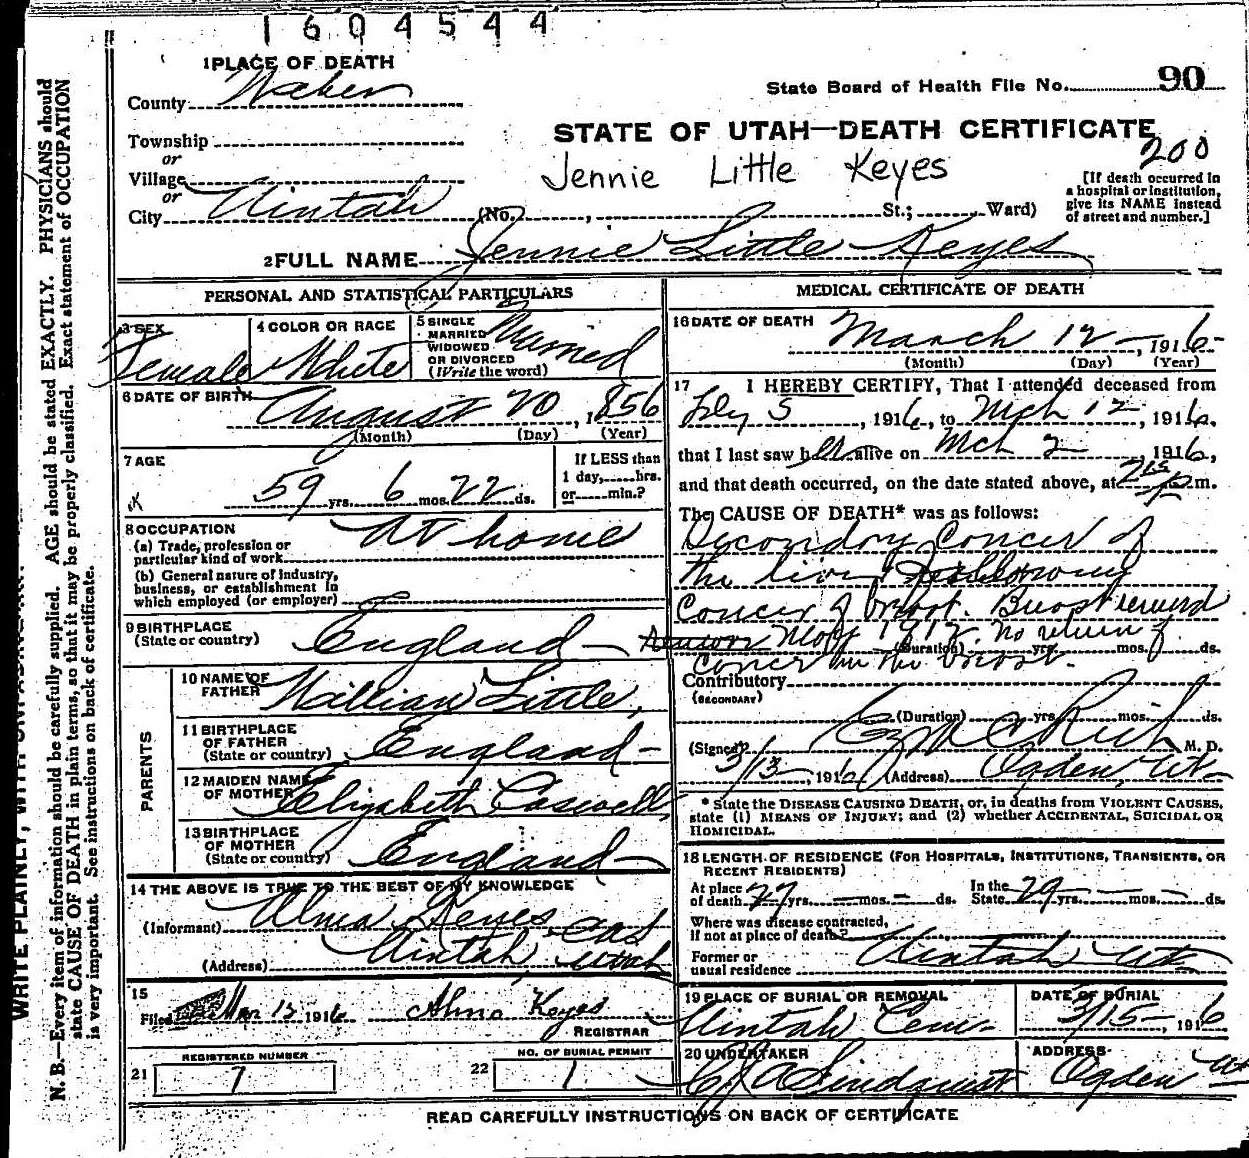 1604544
1 PLACE OF DEATH
County Weber
State Board of Health File No. 90
STATE OF UTAH—DEATH CERTIFICATE
Township
or
Village
or
City Uintah (No. , St.; Ward)
Jennie Little Keyes
200
[If death occurred in
a hospital or institution,
give its NAME instead
of street and number.]
2 FULL NAME Jennie Little Keyes
PERSONAL AND STATISTICAL PARTICULARS
3 SEX
Female
4 COLOR OR RACE
White
5 SINGLE
MARRIED
WIDOWED
OR DIVORCED
(Write the word)
Married
6 DATE OF BIRTH
August 20, 1856
(Month) (Day) (Year)
7 AGE
59 yrs. 6 mos. 22 ds.
If LESS than
1 day,.....hrs.
or.....min.?
8 OCCUPATION
(a) Trade, profession or
particular kind of work
At home
(b) General nature of industry,
business, or establishment in
which employed (or employer)
9 BIRTHPLACE
(State or country)
England
PARENTS
10 NAME OF
FATHER
William Little,
11 BIRTHPLACE
OF FATHER
(State or country)
England
12 MAIDEN NAME
OF MOTHER
Elizabeth Caswell,
13 BIRTHPLACE
OF MOTHER
(State or country)
England
14 THE ABOVE IS TRUE TO THE BEST OF MY KNOWLEDGE
(Informant) Alma Keyes
(Address) Uintah, Utah
15
Filed Mar 13 1916 Alma Keyes
REGISTRAR
REGISTERED NUMBER
21 7
NO. OF BURIAL PERMIT
22 1
MEDICAL CERTIFICATE OF DEATH
16 DATE OF DEATH
March 12, 1916
(Month) (Day) (Year)
17 I HEREBY CERTIFY, That I attended deceased from
5, 1916, to Mch 12, 1916,
that I last saw her alive on Mch 2, 1916,
and that death occurred, on the date stated above, at m.
The CAUSE OF DEATH* was as follows:
Secondary Cancer of
the liver following
Cancer of breast. Breast removed
1912. No return of
(Duration) yrs. mos. ds.
cancer in the breast.
Contributory
(SECONDARY)
(Duration) yrs. mos. ds.
(Signed) Rich M. D.
3/13, 1916 (Address) Ogden, Ut
* State the DISEASE CAUSING DEATH, or, in deaths from VIOLENT CAUSES,
state (1) MEANS OF INJURY; and (2) whether ACCIDENTAL, SUICIDAL OR
HOMICIDAL.
18 LENGTH OF RESIDENCE (FOR HOSPITALS, INSTITUTIONS, TRANSIENTS, OR
RECENT RESIDENTS)
At place
of death 27 yrs. — mos. — ds.
In the
State 29 yrs. — mos. — ds.
Where was disease contracted,
if not at place of death?
Former or
usual residence
Uintah Ut
19 PLACE OF BURIAL OR REMOVAL
Uintah Cem
DATE OF BURIAL
3/15, 1916
20 UNDERTAKER
Lindquist
ADDRESS
Ogden Ut
READ CAREFULLY INSTRUCTIONS ON BACK OF CERTIFICATE
WRITE PLAINLY, WITH
N. B.—Every item of information should be carefully supplied. AGE should be stated EXACTLY. PHYSICIANS should
state CAUSE OF DEATH in plain terms, so that it may be properly classified. Exact statement of OCCUPATION
is very important. See instructions on back of certificate.